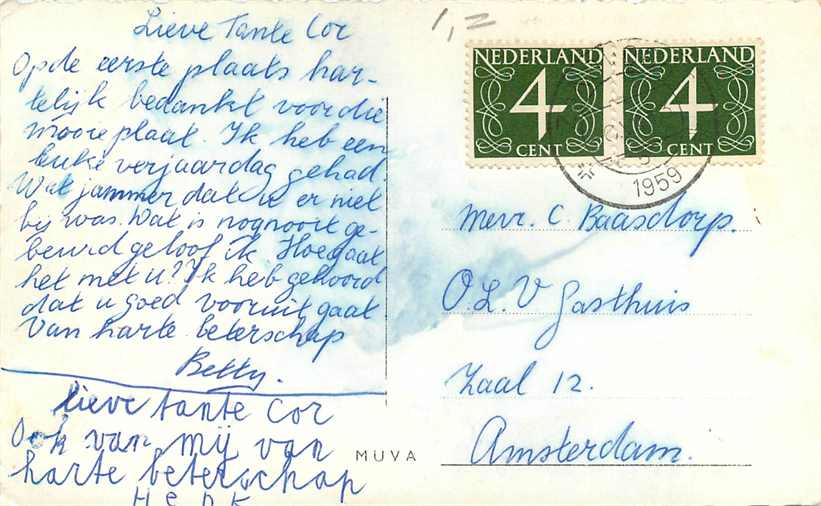 Lieve Tante Cor
Op de eerste plaats har-
telijk bedankt voor die
mooie plaat. Ik heb een
leuke verjaardag gehad.
Wat jammer dat u er niet
bij was. Wat is nog nooit ge-
beurd geloof ik. Hoe gaat
het met u? Ik heb gehoord
dat u goed vooruit gaat
Van harte beterschap
Betty.
lieve tante Cor
Ook van mij van
harte beterschap
Henk
1,2
NEDERLAND
4
CENT
NEDERLAND
4
CENT
1959
Mevr. C. Baasdorp.
O.L.V Gasthuis
Zaal 12.
Amsterdam.
MUVA